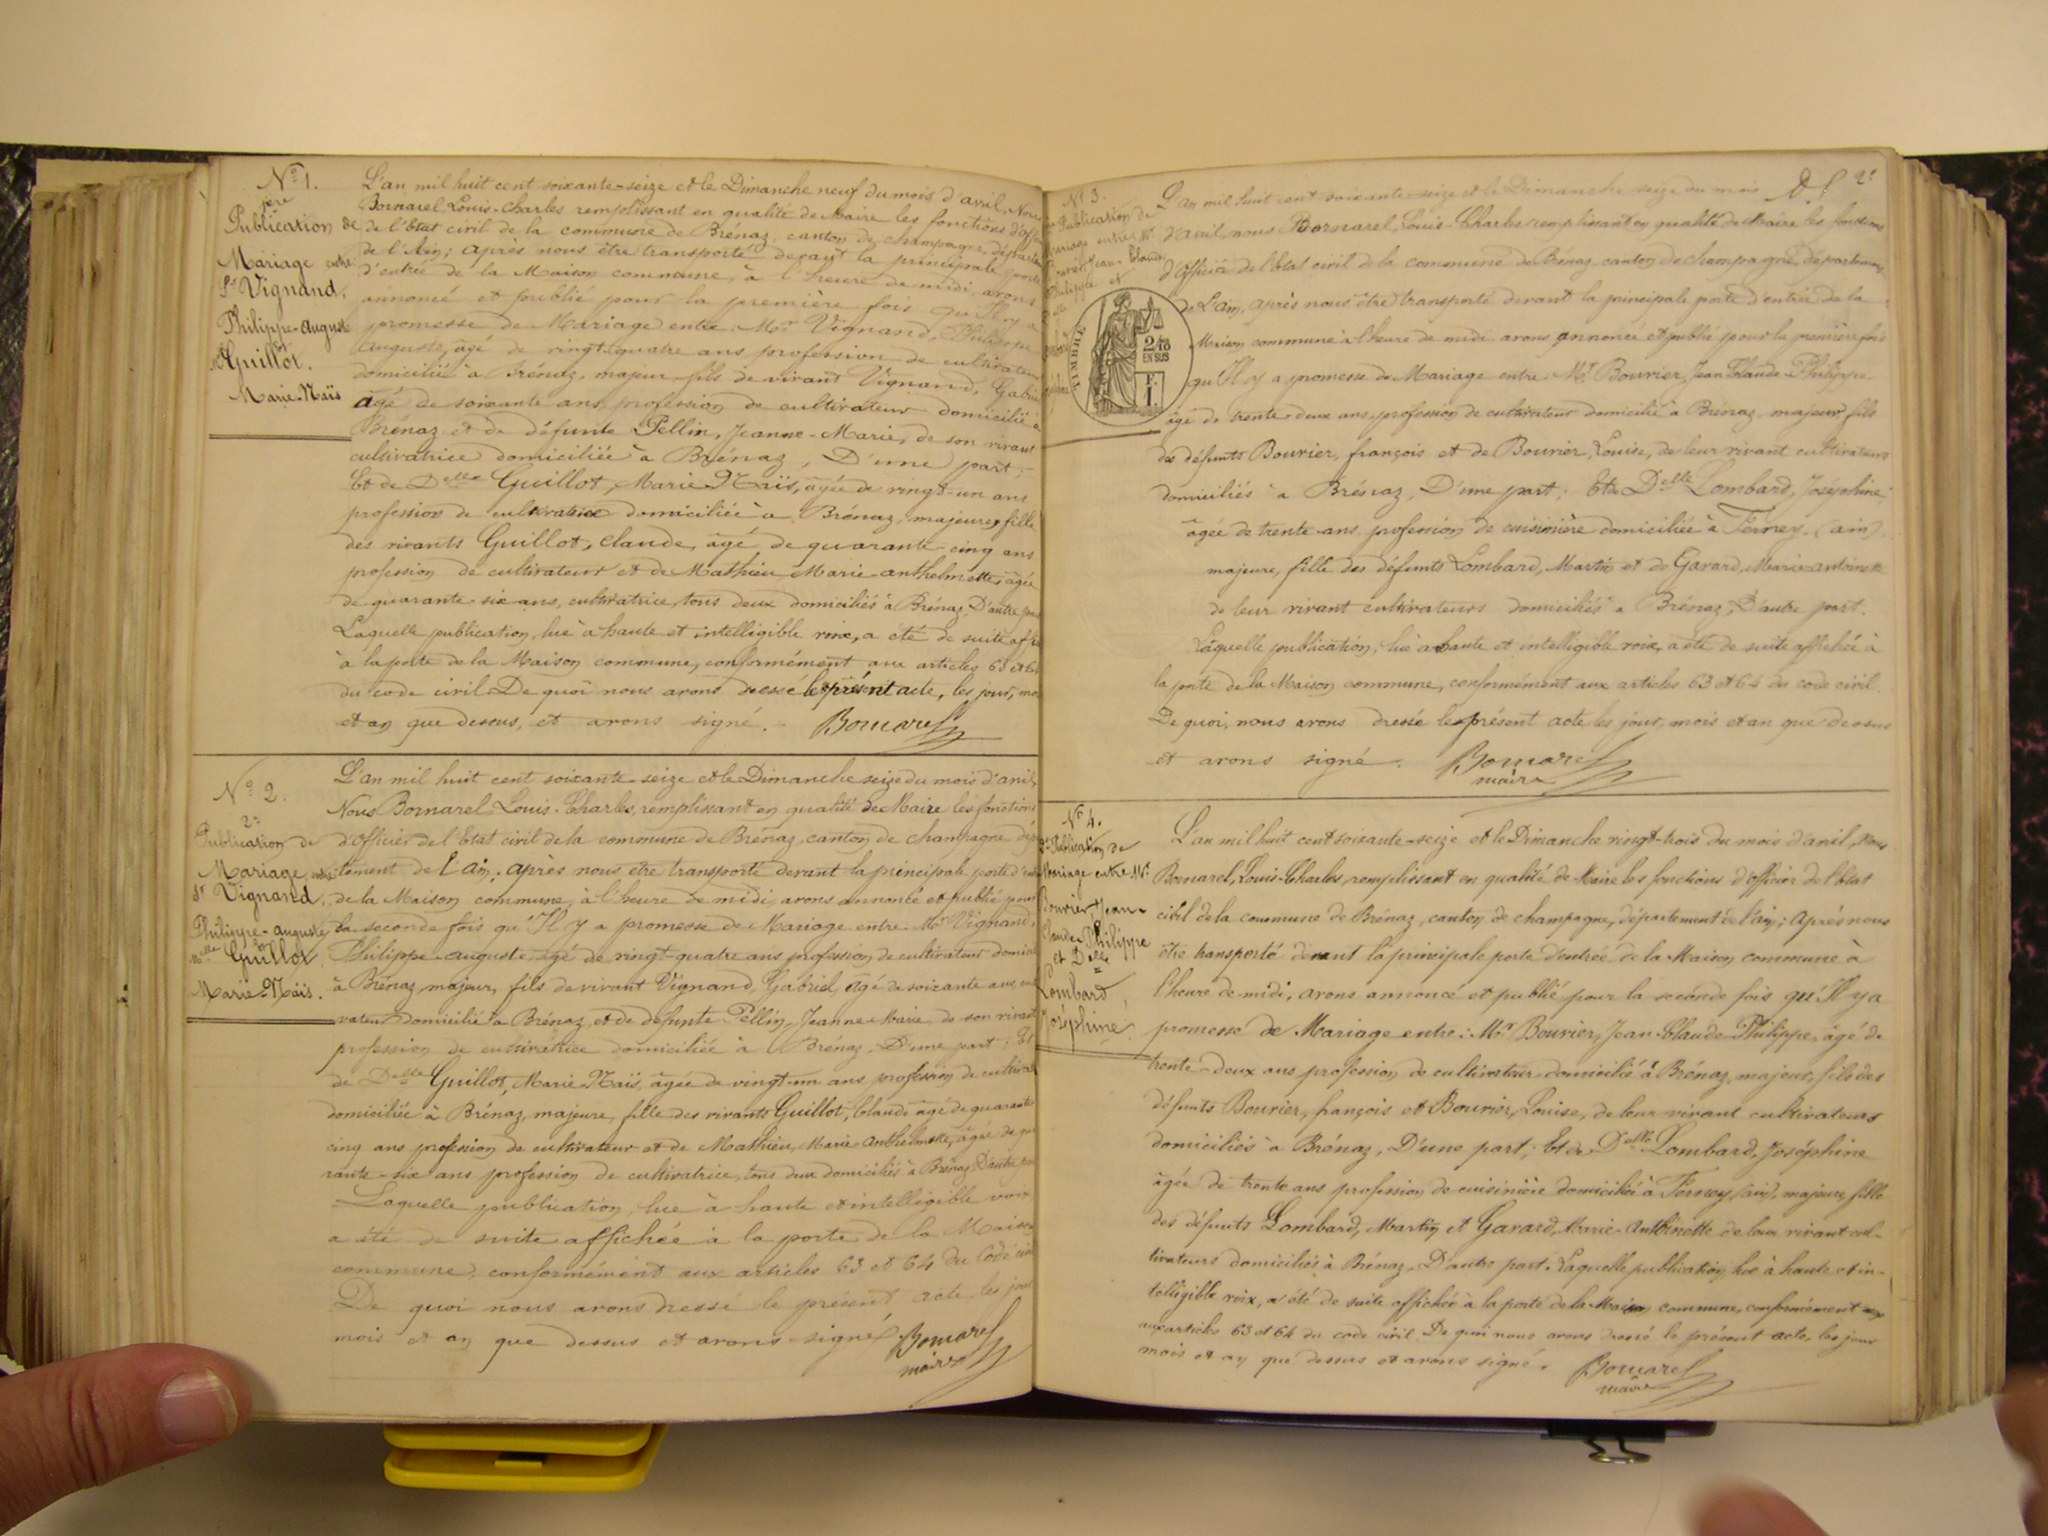 N° 1.
1ère
Publication de
Mariage entre
Sr Vignand,
Philippe-Auguste
et
Mlle Guillot.
Marie-Naïs
L'an mil huit cent soixante-seize et le Dimanche neuf du mois d'avril, Nous
Bornarel Louis-Charles remplissant en qualité de Maire les fonctions d'offi
de l'Etat civil de la commune de Brénaz, canton de champagne, départem
de l'Ain; après nous être transporté devant la principale porte
d'entrée de la Maison commune, à l'heure de midi, avons
annoncé et publié pour la première fois qu'Il y a
promesse de Mariage entre Mr Vignand, Philippe
Auguste, âgé de vingt-quatre ans profession de cultivateur
domicilié à Brénaz, majeur, fils de vivant Vignand, Gabriel
âgé de soixante ans profession de cultivateur domicilié à
Brénaz et de défunte Pellin, Jeanne-Marie, de son vivant
cultivatrice domiciliée à Brénaz, D'une part;
Et de Delle Guillot, Marie Naïs, âgée de vingt-un ans
profession de cultivatrice domiciliée à Brénaz, majeure, fille
des vivants Guillot, claude, âgé de quarante-cinq ans
profession de cultivateur et de Mathieu Marie-anthelmette, âgée
de quarante-six ans, cultivatrice, tous deux domiciliés à Brénaz D'autre part
Laquelle publication, lue à haute et intelligible voix, a été de suite affi
à la porte de la Maison commune, conformément aux articles 63 et 64
du code civil. De quoi nous avons dressé le présent acte, les jour, mo
et an que dessus, et avons signé. Bornarel
N° 2.
2e
Publication de
Mariage entre
Sr Vignand,
Philippe-auguste
et
Mlle Guillot
Marie-Naïs.
L'an mil huit cent soixante-seize et le Dimanche seize du mois d'avril,
Nous Bornarel Louis-Charles, remplissant en qualité de Maire les fonctions
d'officier de l'Etat civil de la commune de Brénaz, canton de champagne dépar
tement de l'ain, après nous être transporté devant la principale porte d'entrée
de la Maison commune, à l'heure de midi, avons annoncé et publié pour
la seconde fois qu'Il y a promesse de Mariage entre Mr Vignand,
Philippe-auguste, âgé de vingt-quatre ans profession de cultivateur domicilié
à Brénaz, majeur, fils de vivant Vignand, Gabriel, âgé de soixante ans, culti
vateur domicilié à Brénaz, et de défunte Pellin, Jeanne-Marie, de son vivant
profession de cultivatrice domiciliée à Brénaz, D'une part; Et
de Delle Guillot, Marie Naïs, âgée de vingt-un ans profession de cultivat
domiciliée à Brénaz, majeure, fille des vivants Guillot, Claude âgé de quarante
cinq ans profession de cultivateur et de Mathieu, Marie-Anthelmette, âgée de qua
rante-six ans profession de cultivatrice, tous deux domiciliés à Brénaz, D'autre part
Laquelle publication, lue à haute et intelligible voix
a été de suite affichée à la porte de la Maison
commune, conformément aux articles 63 et 64 du Code civil
De quoi nous avons dressé le présent acte les jour
mois et an que dessus et avons signé Bornarel
maire
2e
N° 3.
Publication de
Mariage entre Mr
Bourier, Jean-Claude
Philippe et
TIMBRE
2/10
EN SUS
1 F.
L'an mil huit cent soixante-seize et le Dimanche seize du mois
d'avril, nous Bornarel, Louis-Charles remplissant en qualité de Maire les fonctions
d'officier de l'Etat civil de la commune de Brénaz canton de champagne, département
de l'ain, après nous être transporté devant la principale porte d'entrée de la
Maison commune à l'heure de midi avons annoncé et publié pour la première fois
qu'Il y a promesse de Mariage entre Mr Bourier, Jean Claude Philippe
âgé de trente-deux ans, profession de cultivateur domicilié à Brénaz, majeur, fils
des défunts Bourier, françois et de Bourier, Louise, de leur vivant cultivateurs
domiciliés à Brénaz, D'une part; Et de Delle Lombard, Joséphine
âgée de trente ans, profession de cuisinière domiciliée à Ferney (ain)
majeure, fille des défunts Lombard, Martin et de Gavard, Marie-antoinette
de leur vivant cultivateurs domiciliés à Brénaz, D'autre part.
Laquelle publication, lue à haute et intelligible voix, a été de suite affichée à
la porte de la Maison commune, conformément aux articles 63 et 64 du code civil.
De quoi, nous avons dressé le présent acte les jour, mois et an que dessus
et avons signé. Bornarel
maire
N° 4.
2e Publication de
Mariage entre Mr
Bourier, Jean-
Claude Philippe
et Delle
Lombard,
Joséphine.
L'an mil huit cent soixante-seize et le Dimanche vingt-trois du mois d'avril, Nous
Bornarel, Louis-Charles, remplissant en qualité de Maire les fonctions d'officier de l'Etat
civil de la commune de Brénaz, canton de champagne, département de l'ain; Après nous
être transporté devant la principale porte d'entrée de la Maison commune à
l'heure de midi, avons annoncé et publié pour la seconde fois qu'Il y a
promesse de Mariage entre: Mr Bourier, Jean-Claude-Philippe, âgé de
trente-deux ans profession de cultivateur domicilié à Brénaz, majeur, fils des
défunts Bourier, françois et Bourier, Louise, de leur vivant cultivateurs
domiciliés à Brénaz, D'une part; Et de Delle Lombard, Joséphine
âgée de trente ans profession de cuisinière domiciliée à Ferney (ain), majeure fille
des défunts Lombard, Martin et Gavard, Marie-Antoinette de leur vivant cul-
tivateurs domiciliés à Brénaz, D'autre part. Laquelle publication lue à haute et in-
telligible voix, a été de suite affichée à la porte de la Maison commune, conformément
aux articles 63 et 64 du code civil. De quoi nous avons dressé le présent acte, les jour
mois et an que dessus et avons signé. Bornarel
maire